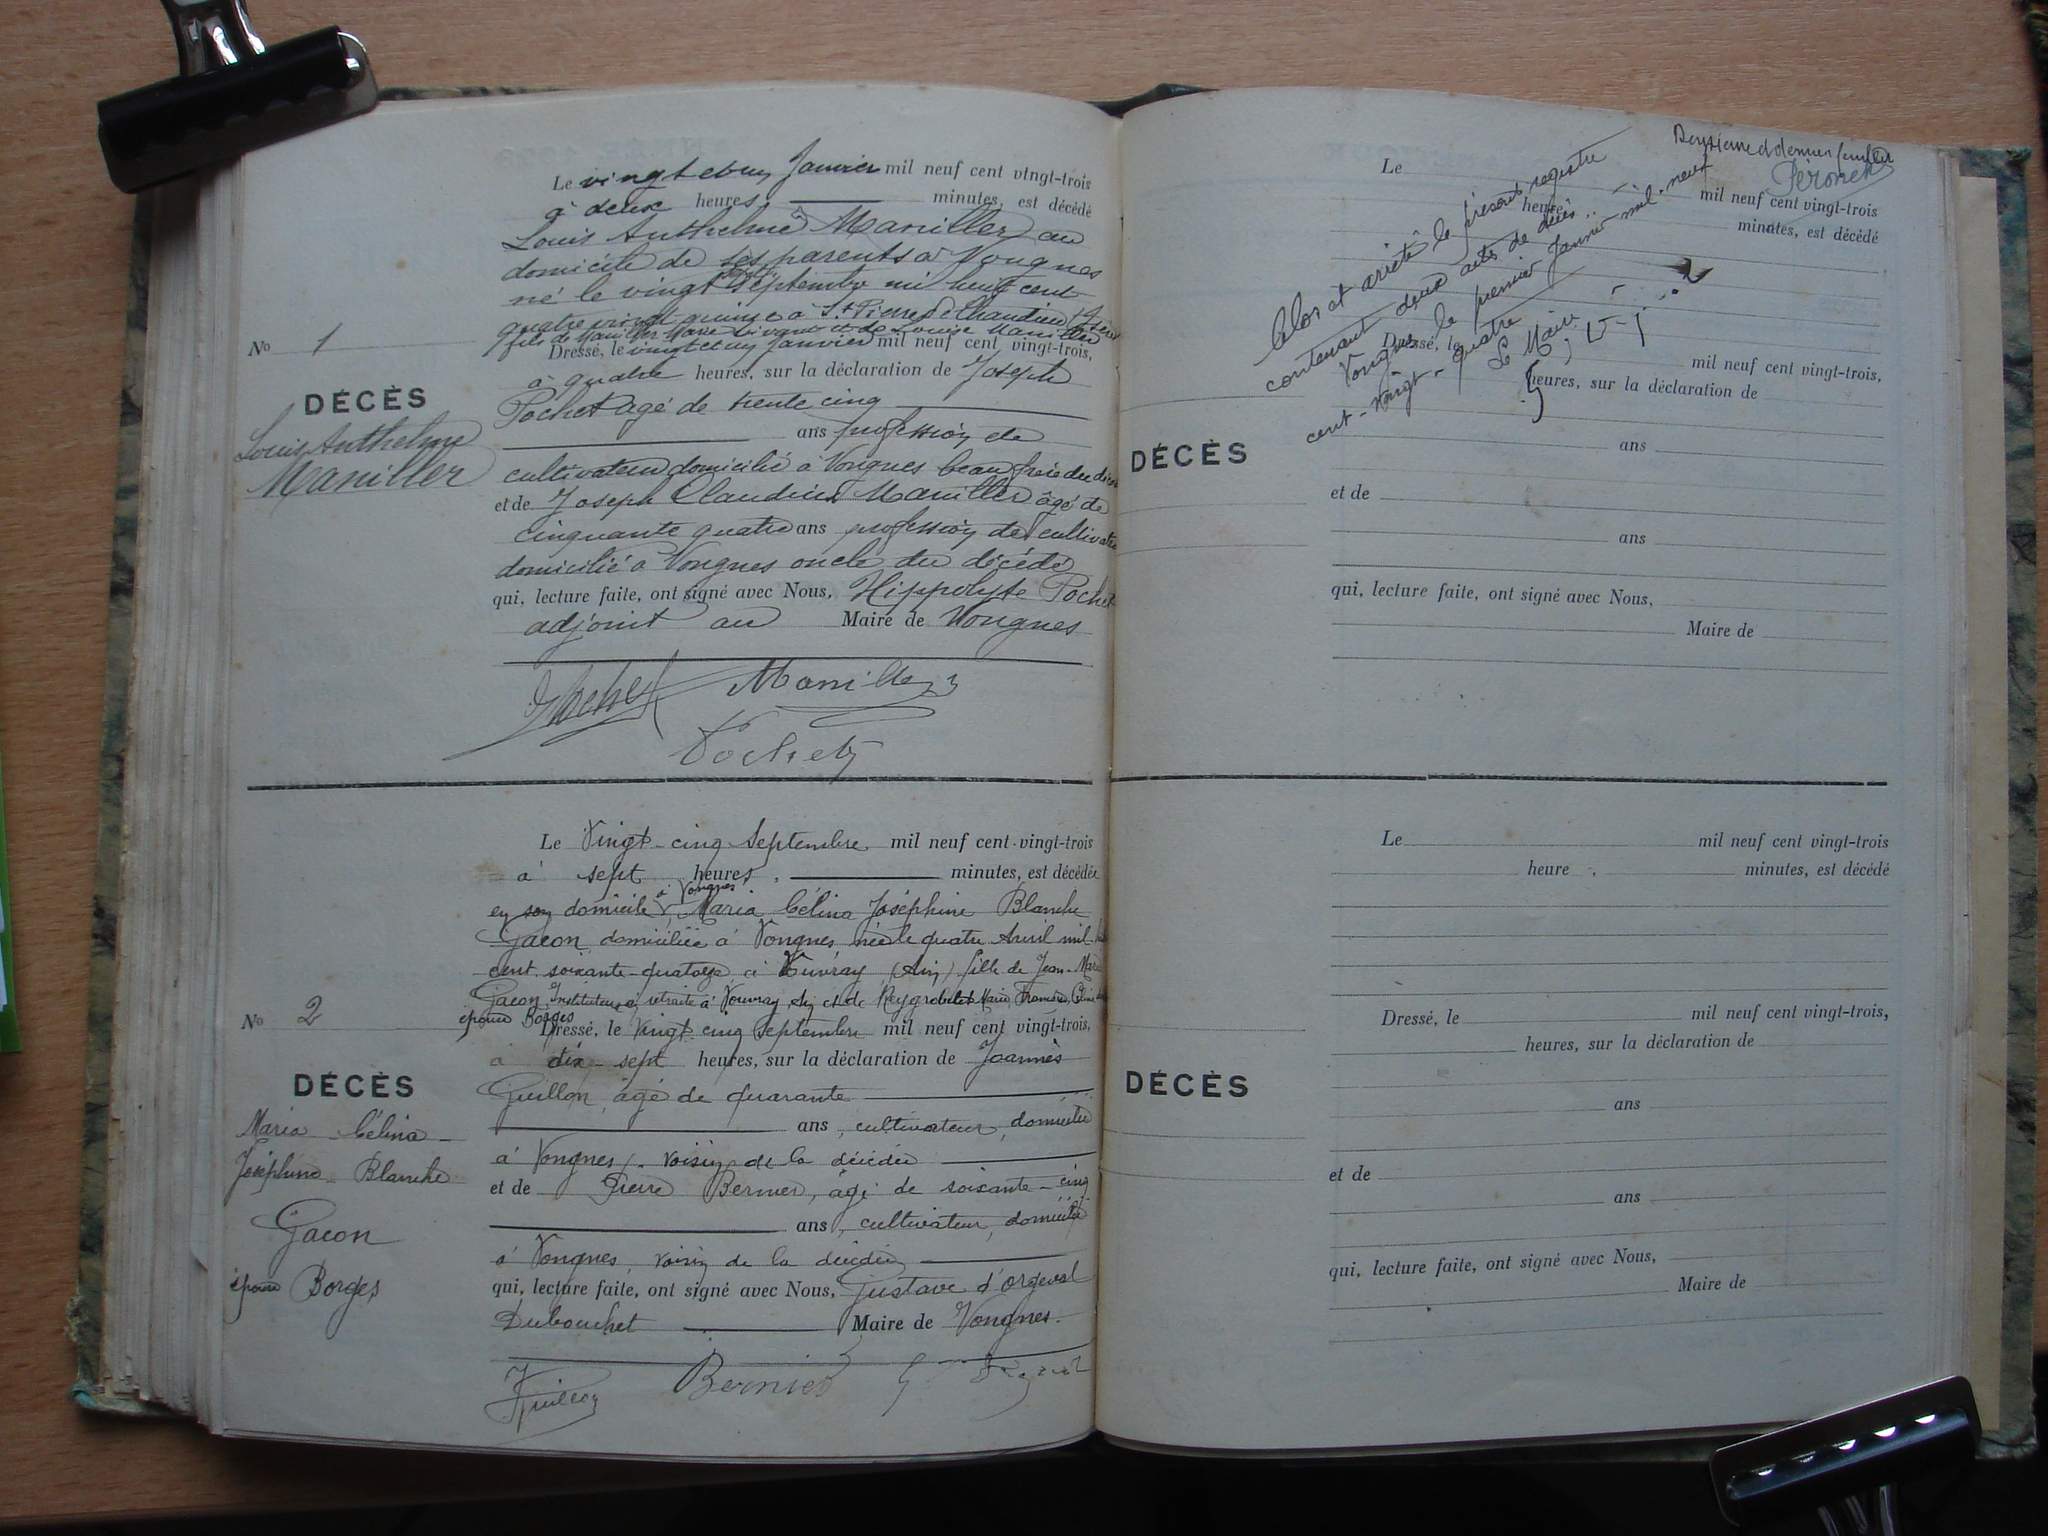 Le vingt et un Janvier mil neuf cent vingt-trois
à deux heures minutes, est décédé
Louis Anthelme Maniller au
domicile de ses parents à Vongnes
né le vingt sept Septembre mil huit cent
quatre vingt quinze à St Pierre de Chandieu Isère
fils de Maniller Marie et de Louise Maniller
No 1
Dressé, le vingt et un Janvier mil neuf cent vingt-trois,
à quatre heures, sur la déclaration de Joseph
DÉCÈS
Louis Anthelme
Maniller
Pochet âgé de trente cinq
ans profession de
cultivateur domicilié à Vongnes beau frère du
et de Joseph Claudius Maniller âgé de
cinquante quatre ans profession de cultivateur
domicilié à Vongnes oncle du décédé
qui, lecture faite, ont signé avec Nous, Hippolyte Pochet
adjoint au Maire de Vongnes
Pochet Maniller
Pochet
Le Vingt-cinq Septembre mil neuf cent vingt-trois
à sept heures, minutes, est décédée
en son domicile à Vongnes, Maria Célina Joséphine Blanche
Gacon domiciliée à Vongnes née le quatre Avril mil
cent soixante-quatorze à (Ain) fille de Jean-Marie
Gacon, Instituteur en retraite à Vouvray, Ain et de Marie
épouse Borges
No 2
Dressé, le Vingt-cinq Septembre mil neuf cent vingt-trois,
à dix-sept heures, sur la déclaration de Joannès
DÉCÈS
Maria Célina
Joséphine Blanche
Gacon
épouse Borges
Guillon, âgé de quarante
ans, cultivateur, domicilié
à Vongnes, voisin de la décédée
et de Pierre Bernier, âgé de soixante-cinq
ans, cultivateur, domicilié
à Vongnes, voisin de la décédée
qui, lecture faite, ont signé avec Nous, Gustave d'Orgeval
Dubouchet Maire de Vongnes.
Guillon Bernier
Deuxième et dernier feuillet
Peronck
Clos et arrêté le présent registre
contenant deux actes de décès
Vongnes le premier Janvier mil-neuf
cent-vingt-quatre
Le Maire
Le mil neuf cent vingt-trois
heure minutes, est décédé
Dressé, le mil neuf cent vingt-trois,
heures, sur la déclaration de
DÉCÈS
ans
et de
ans
qui, lecture faite, ont signé avec Nous,
Maire de
Le mil neuf cent vingt-trois
heure minutes, est décédé
Dressé, le mil neuf cent vingt-trois,
heures, sur la déclaration de
DÉCÈS
ans
et de
ans
qui, lecture faite, ont signé avec Nous,
Maire de